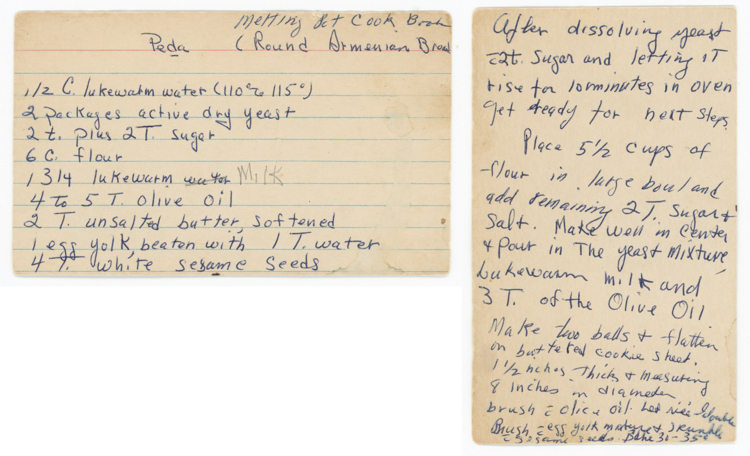 Melting Pot Cook Book
Peda (Round Armenian Bread
1/2 C. lukewarm water (110° to 115°)
2 packages active dry yeast
2 t. plus 2 T. sugar
6 C. flour
1 3/4 lukewarm water Milk
4 to 5 T. Olive Oil
2 T. unsalted butter, softened
1 egg yolk, beaten with 1 T. water
4 T. white sesame seeds
After dissolving yeast
=2t. Sugar and letting it
rise for 10 minutes in oven
get ready for next steps
Place 5 1/2 cups of
flour in large bowl and
add remaining 2 T. Sugar +
Salt. Make well in Center
+ Pour in The yeast mixture,
Lukewarm milk and
3 T. of the Olive Oil
Make two balls + flatten
on buttered cookie sheet.
1 1/2 inches Thick + measuring
8 inches in diameter
brush = olive oil. Let rise double
Brush = egg yolk mixture + sprinkle
= sesame seeds Bake 30-35